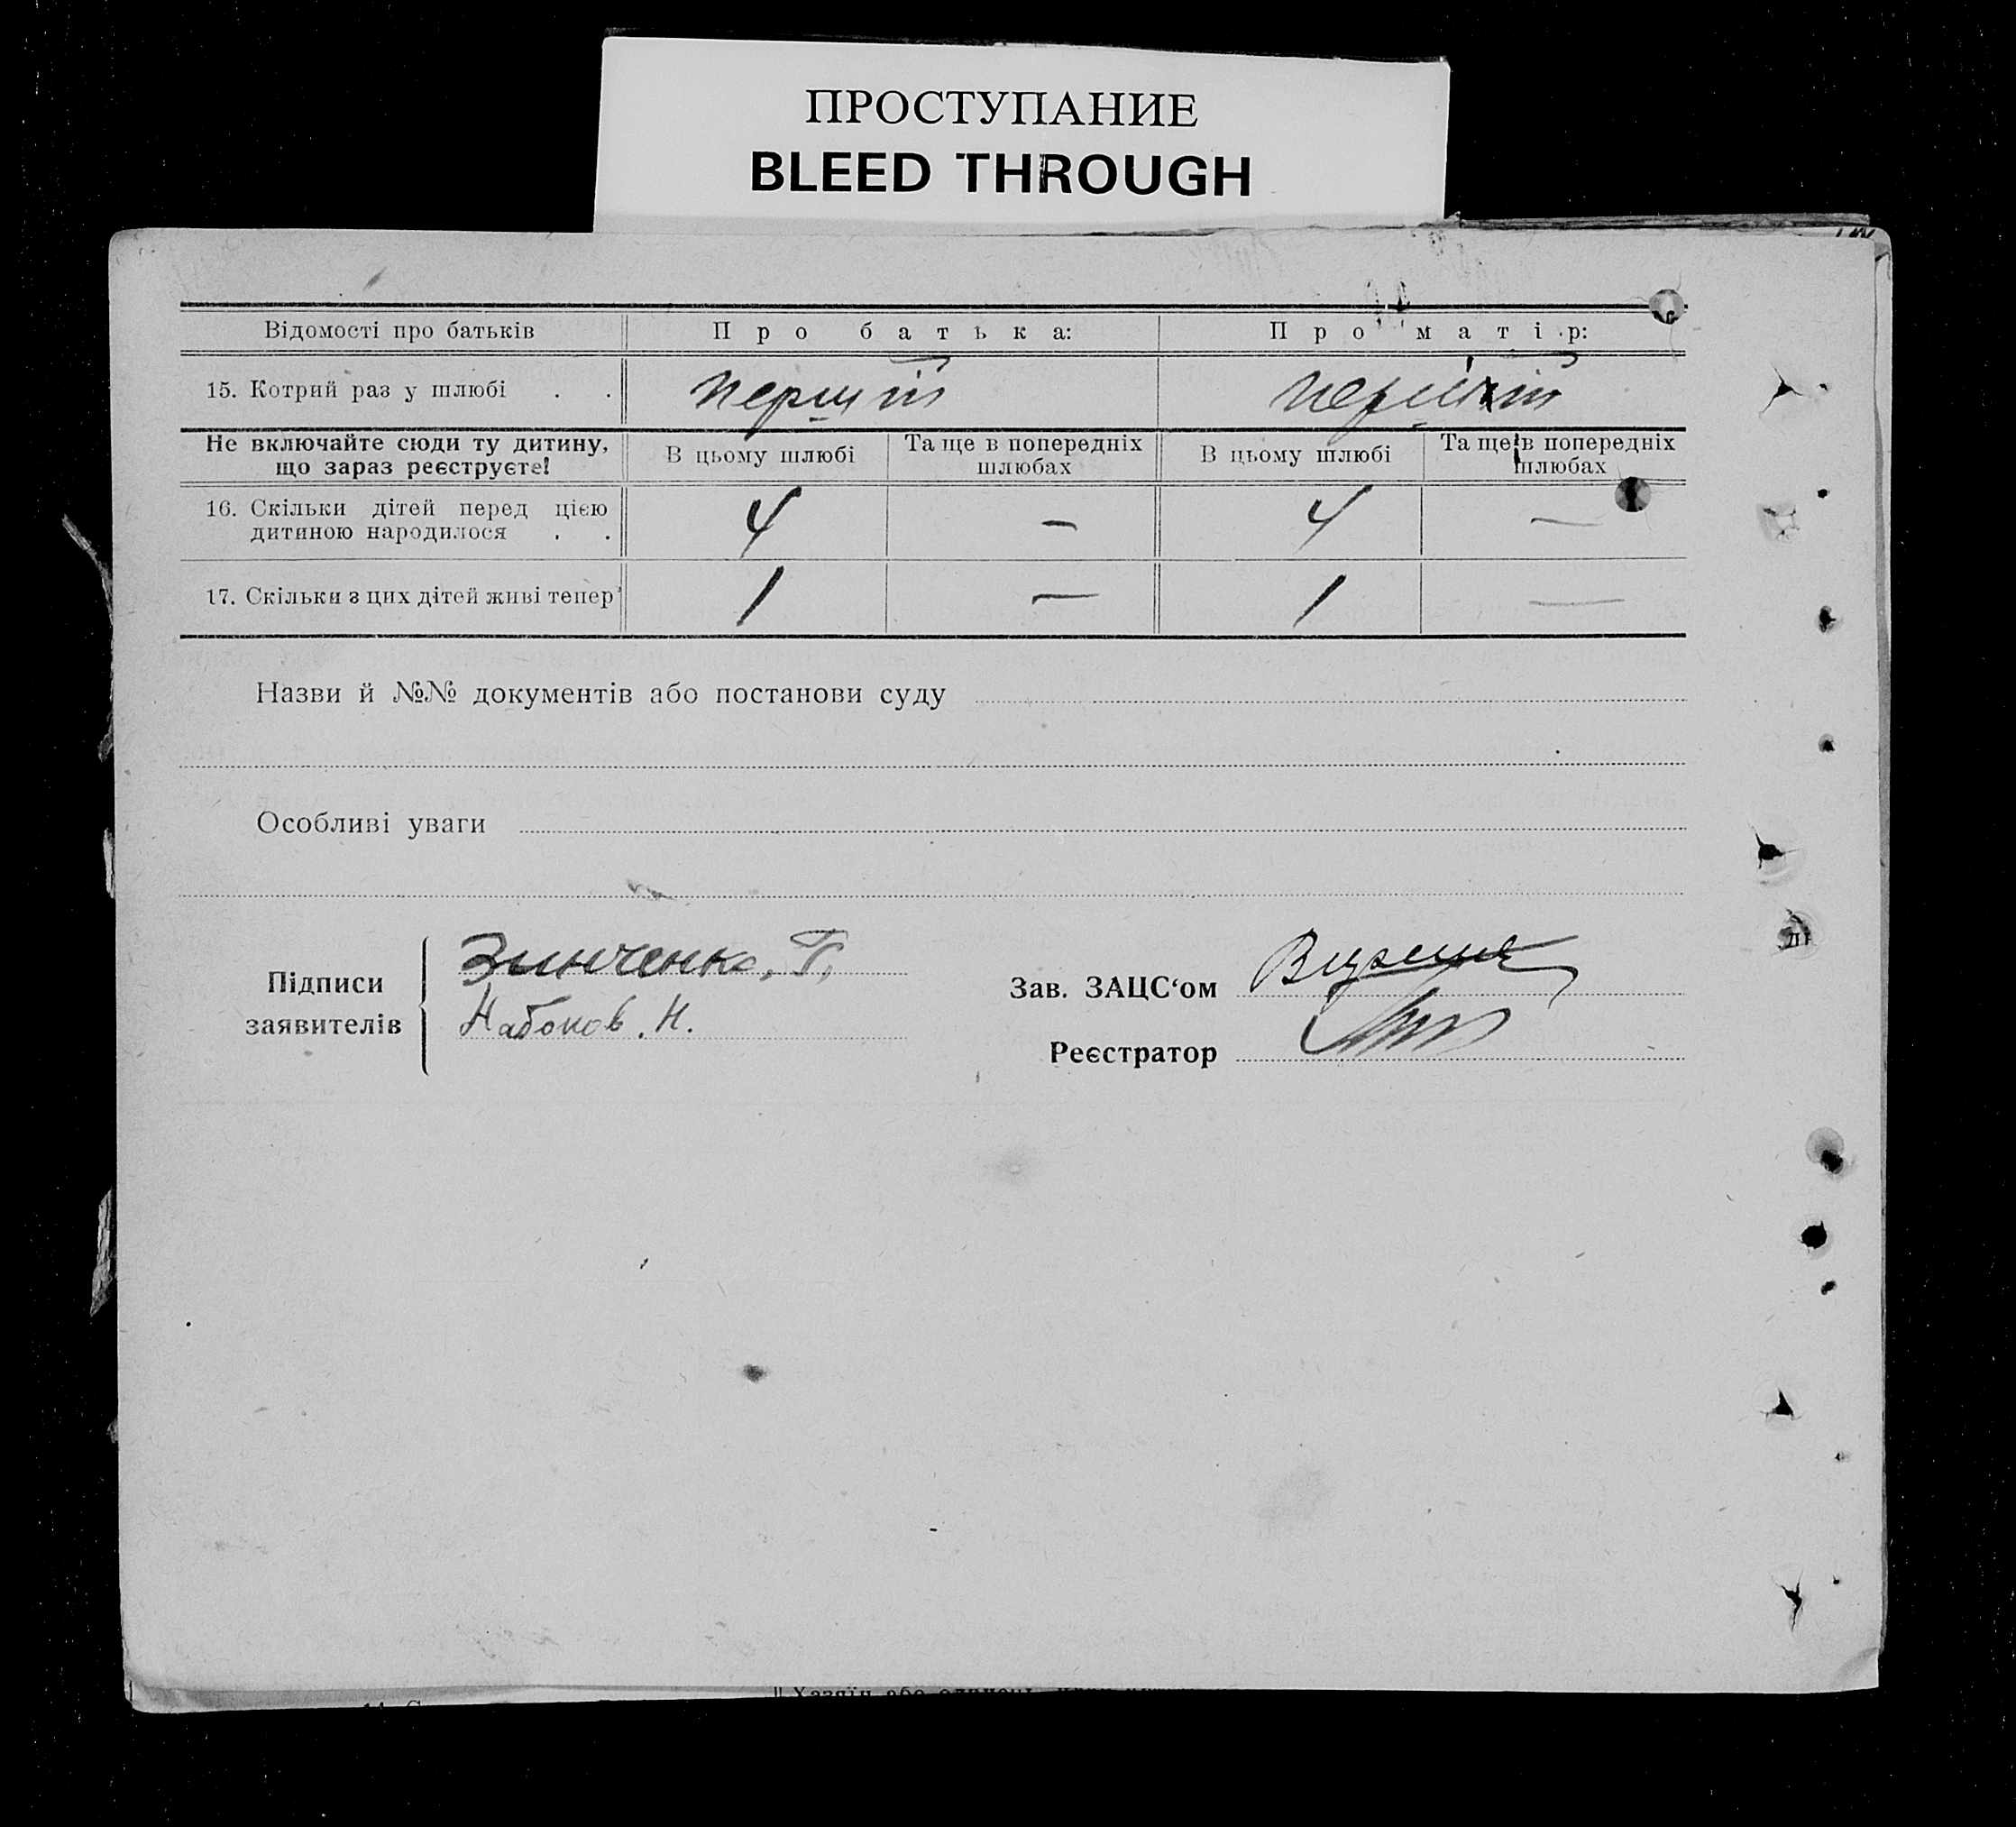 ПРОСТУПАНИЕ
BLEED THROUGH
Відомості про батьків Про батька: Про матір:
15. Котрий раз у шлюбі . . перший перший
Не включайте сюди ту дитину, що зараз реєструєте! В цьому шлюбі Та ще в попередніх шлюбах В цьому шлюбі Та ще в попередніх шлюбах
16. Скільки дітей перед цією дитиною народилося . . 4 — 4 —
17. Скільки з цих дітей живі тепер 1 — 1 —
Назви й №№ документів або постанови суду
Особливі уваги
Підписи заявителів
Зинченко, Г.
Набоков. Н.
Зав. ЗАЦС‘ом
Реєстратор